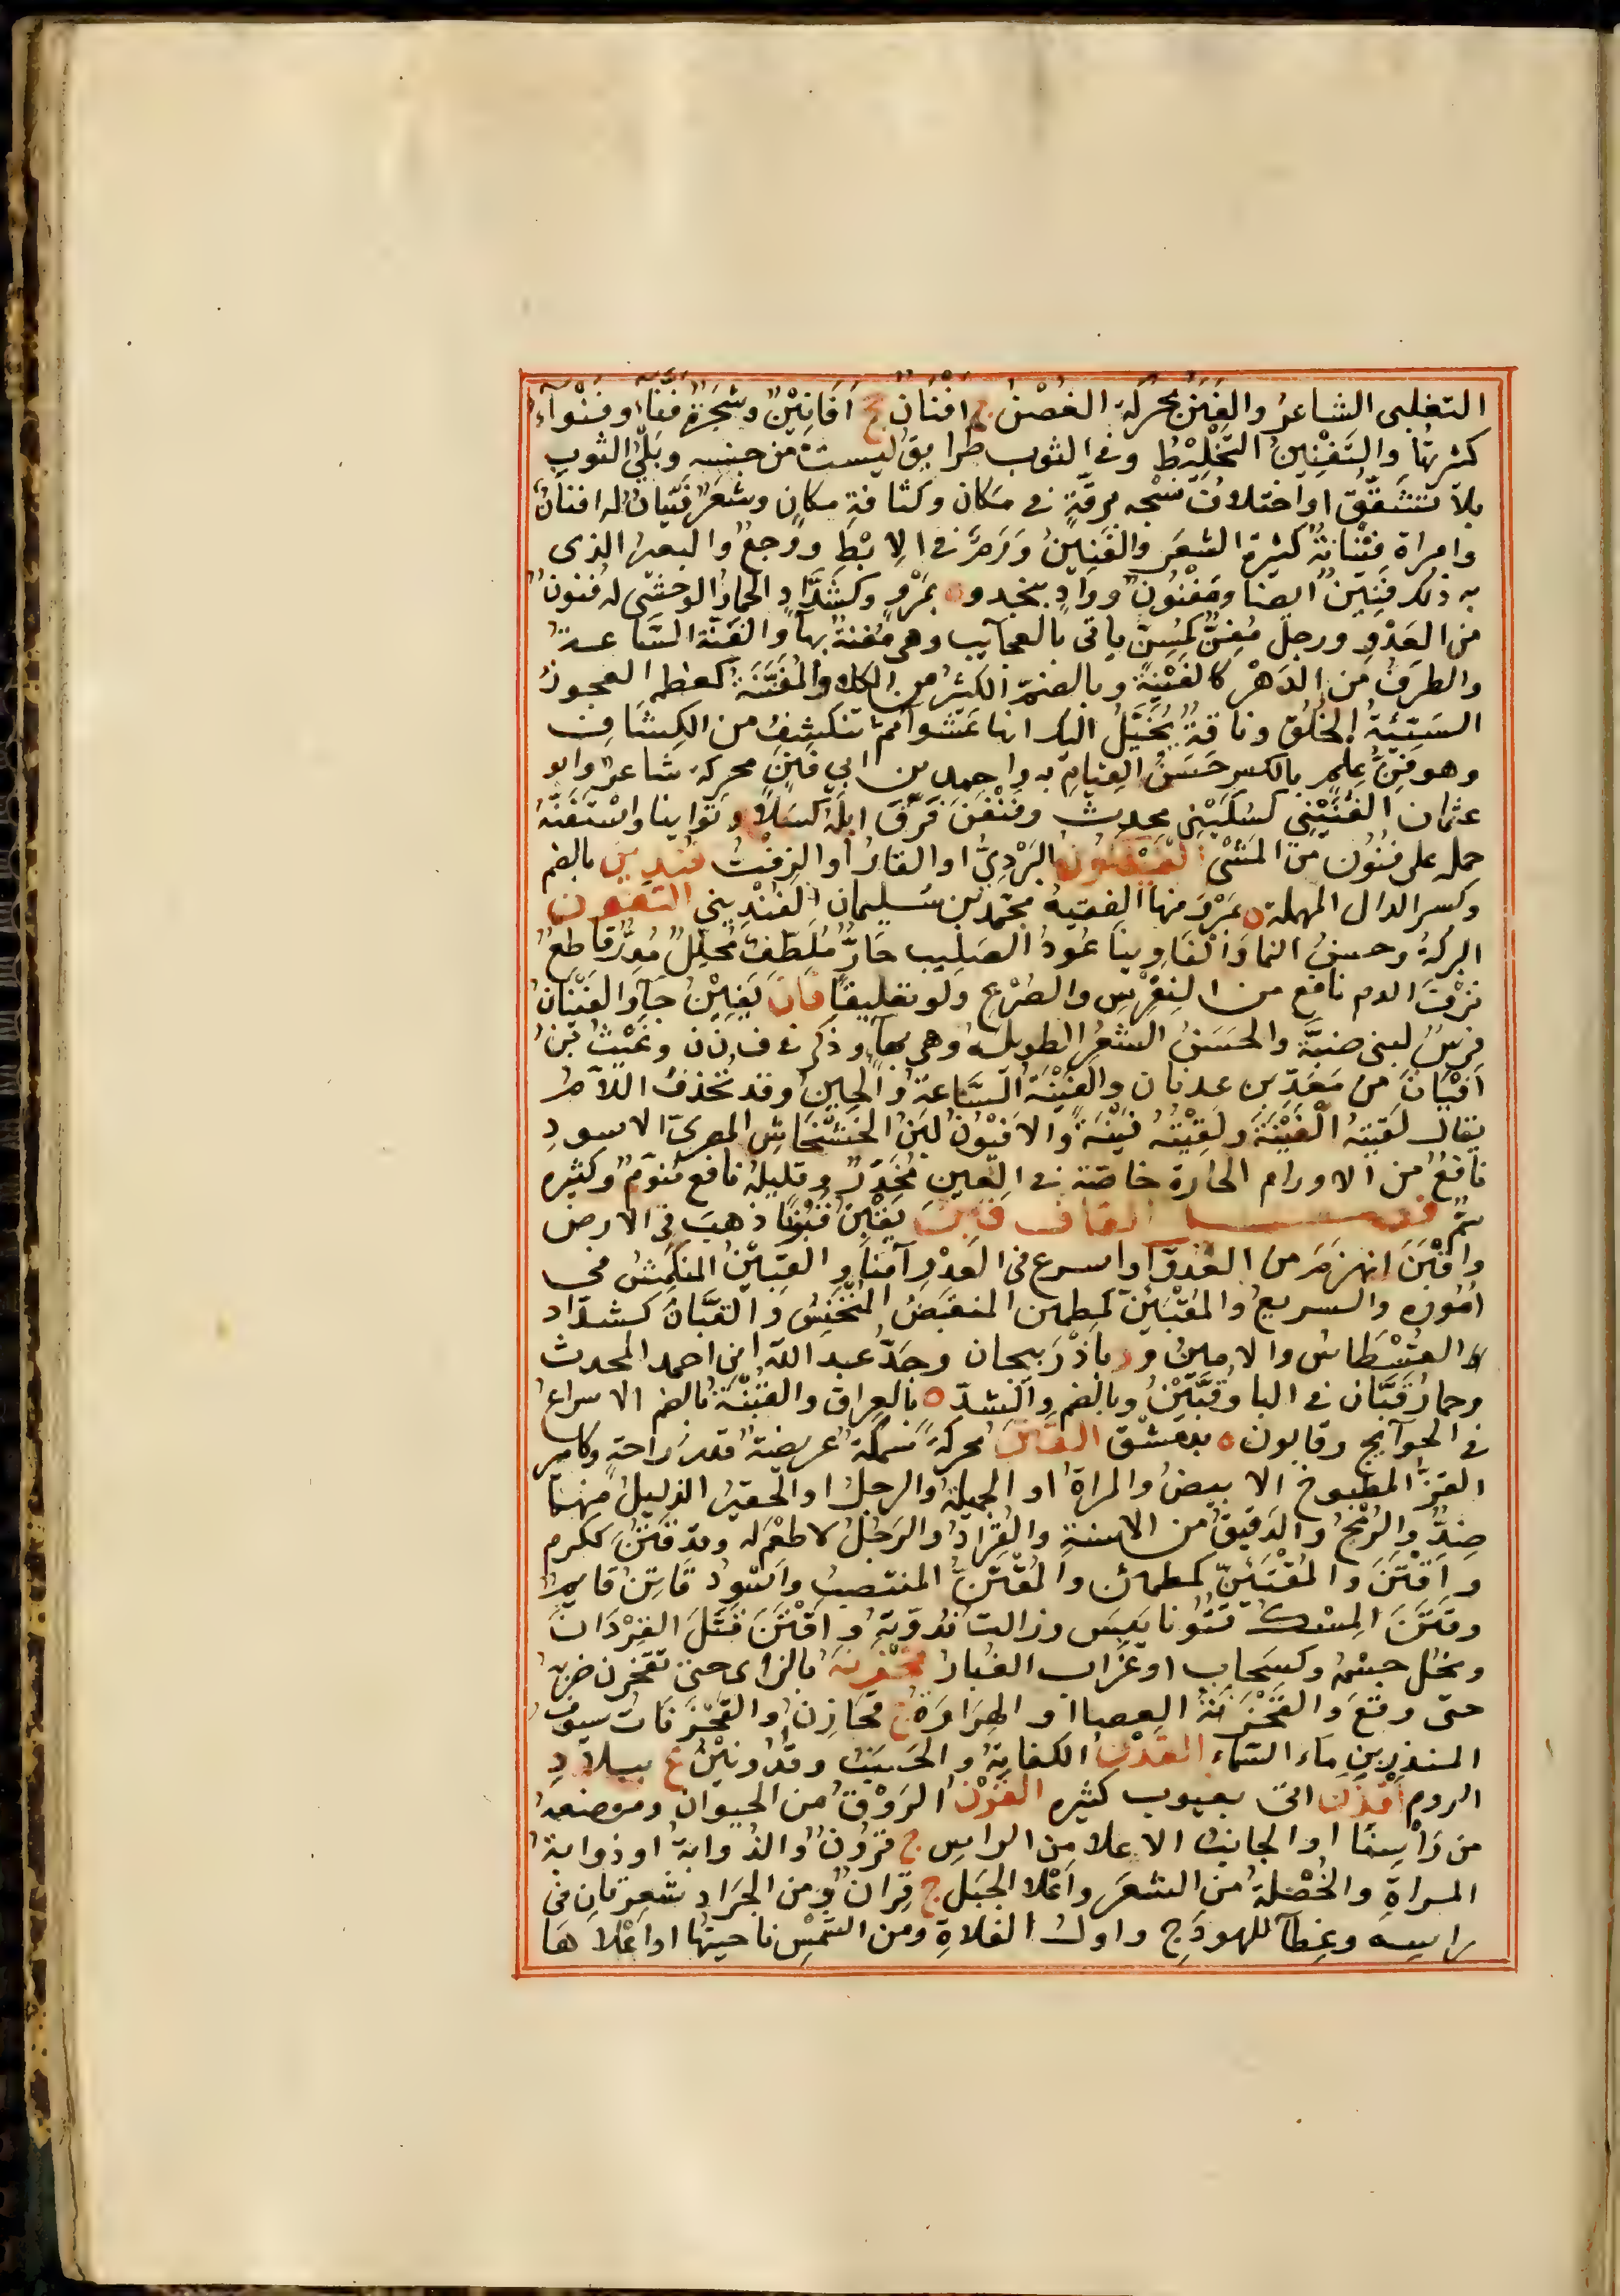 التغلبى الشاعرُ والفَنَنُ محركةً الغُصْنُ ج افنان جج اَفَانِيْنُ وشَجَرَةٌ فَنَّاءُ وفَنْوَآءُ
كثيرتُها والتَفْنِينُ التَّخْلِيْطُ وفى الثوب طرايقُ ليست من جنسه وبَلْىُ الثوب
بلا تَشَقُّقٍ او اختلافُ نسْجه برقّةٍ فى مكان وكثافةٍ مكانٍ وشعَرٌ فَيْنَانٌ له افنان
وامراة فَيْنانةٌ كثيرة الشعر والفَنِينُ وَرَمٌ فى الاِبْطِ ووجعٌ والبعير الذى
به ذلك فَنِيْنٌ ايضا ومَفْنُونٌ ووادٍ بنجد وة بمَرْوٍ وكشَدَّادٍ الحمارُ الوحشىّ له فنون
من العَدْوِ ورجل مُفِنٌّ كمُسِنٍّ ياتى بالعجايب وهى مُفنةٌ بهآ والفَنّة السَّاعةُ
والطرفُ من الدَهْر كالفَيْنَةِ وبالضمّ الكثيرُ من الكلاء والمُفَنَّنَةُ كمعظمه العجوزُ
السَّيِّئَةُ الخُلُقِ وناقةٌ يُخَيَّلُ اليك انها عَشَرآ ثمّ تنكشِفُ من الكِشَافِ
وهو فِنُّ عِلمٍ بالكسر حَسَنُ القِيَامِ به واحمد بن ابي فَنَنٍ محركةً شاعرٌ وابو
عثمان الفُنَيْنِي كسُكَيْنِي محدثٌ وفَنْفَنَ فَرَّقَ اِبِلَهُ كسَلاً وتوانيا واسْتَفَنَّهُ
حمله على فُنُون من المَشْىِ الفَيْجَنُون البَرْدِىُّ او القارُ او الزفْتُ فُنْدِينُ بالضم
وكسر الدال المهملة ة بمَرْوَ منها الفقيهُ محمّد بن سُليمان الفُنْدِيني التفون
البركةُ وحسنُ النما والفَاوِينا عُودُ الصَلِيبِ حَارٌّ مُلَطِّفٌ مُحلِّلٌ مُدِرٌّ قاطعٌ
نَزْفَ الدم نافع من النِقْرِسِ والصَّرْعِ ولو تعليقًا فان يَفِيْنُ جآ والفَيْنَانُ
فرسٌ لبنى ضبّة والحَسَنُ الشعرِ الطويلُهُ وهى بهآ وذكر فى ف ن ن وغَيْثُ بنُ
اَفْيَانَ من مَعَدِّ بن عدنان والفَيْنَةُ السَّاعةُ والحِينُ وقد تُحْذَفُ اللامُ
يقال لَقِيتهُ الفَيْنَةَ ولَقِيْتُه فَيْنَةً والافْيُونُ لبَنُ الخَشْخَاشِ المصرىِّ الاسودِ
نافعٌ من الاورام الحارة خاصّة فى العين مُخَدِّرٌ وقليلهُ نافع مُنوّمٌ وكثيره
سمٌّ فصل القاف قَبَنَ يَقْبِنُ قُبُونًا ذهبَ فى الارض
واَقْبَنَ انهزمَ من العَدوّ او اسرع فى العَدْو آمنًا والقَبِيْنُ المنكمِشُ فى
اُمُورِه والسريعُ والمُقْبَئِنّ كمطمئن المنقبَضُ المُنْخَنِسُ والقَبَّانُ كشدّادٍ
القِسْطَاسُ والامينُ ود باَذْرَبيجان وجَدُّ عبد اللّه ابن احمد المحدث
وحمارُ قَبَّان فى البا وقُبَّيْنُ وبالضم والشدّ ة بالعِراق والقُبْنَةُ بالضم الاسراع
فى الحوآيج وقابون ة بدمشق القَتَنُ محركةً سَمكةٌ عريضة قدرُ راحةٍ وكامِير
القزُّ المطبوخ الابيضُ والمراةُ او الجميلةُ والرجلُ او الحقيرُ الذليلُ منهما
ضِدٌّ والرُمْحُ والدَقيقُ من الاسنةِ والقُرَادُ والرَجُلُ لا طعْمَ له وقد قَتُنَ ككرم
واَقْتَنَ والمُقْتَئِنّ كمطمائن والمُقْتَنُّ المنتصبُ واَسْوَدُ قَاتِنٌ قايمٌ
وقَتَنَ المِسْكُ قُتُونا يَبِسَ وزالت نُدُوّتهُ واقْتَنَ قَتَلَ القِرْدَانَ
ونحُل جسْمُه وكسَحابٍ او غُرَاب الغُبارُ قَحْزَنَهُ بالزاى حتى تقحزن ضربه
حتى وقعَ والقَحْزَنَةُ العصا او الهِرَاوَةُ ج قحَازِنُ والقَحْزَنَاتُ سيوفُ
المنذِرِبنِ مآء السّمآء القَدْن الكفايةُ والحَسَبُ وقَدُونَيْنُ ع ببلادِ
الروم اَقْذَنَ اتى بعيوب كثيره القَرْنُ الرَوْقُ من الحيوان وموضعهُ
من رَاْسِنَا او الجانبُ الاعلا من الراسِ ج قُرُونٌ والذُوابةُ او ذوابةُ
المراةِ والخُصْلةُ من الشعَر واَعْلا الجَبَل ج قِرَانٌ ومن الجرَادِ شعرتانِ فى
راسِه وغِطآ للهودَجِ واول الفلاةِ ومن الشمْسِ ناحيتُها او اعْلاهَا